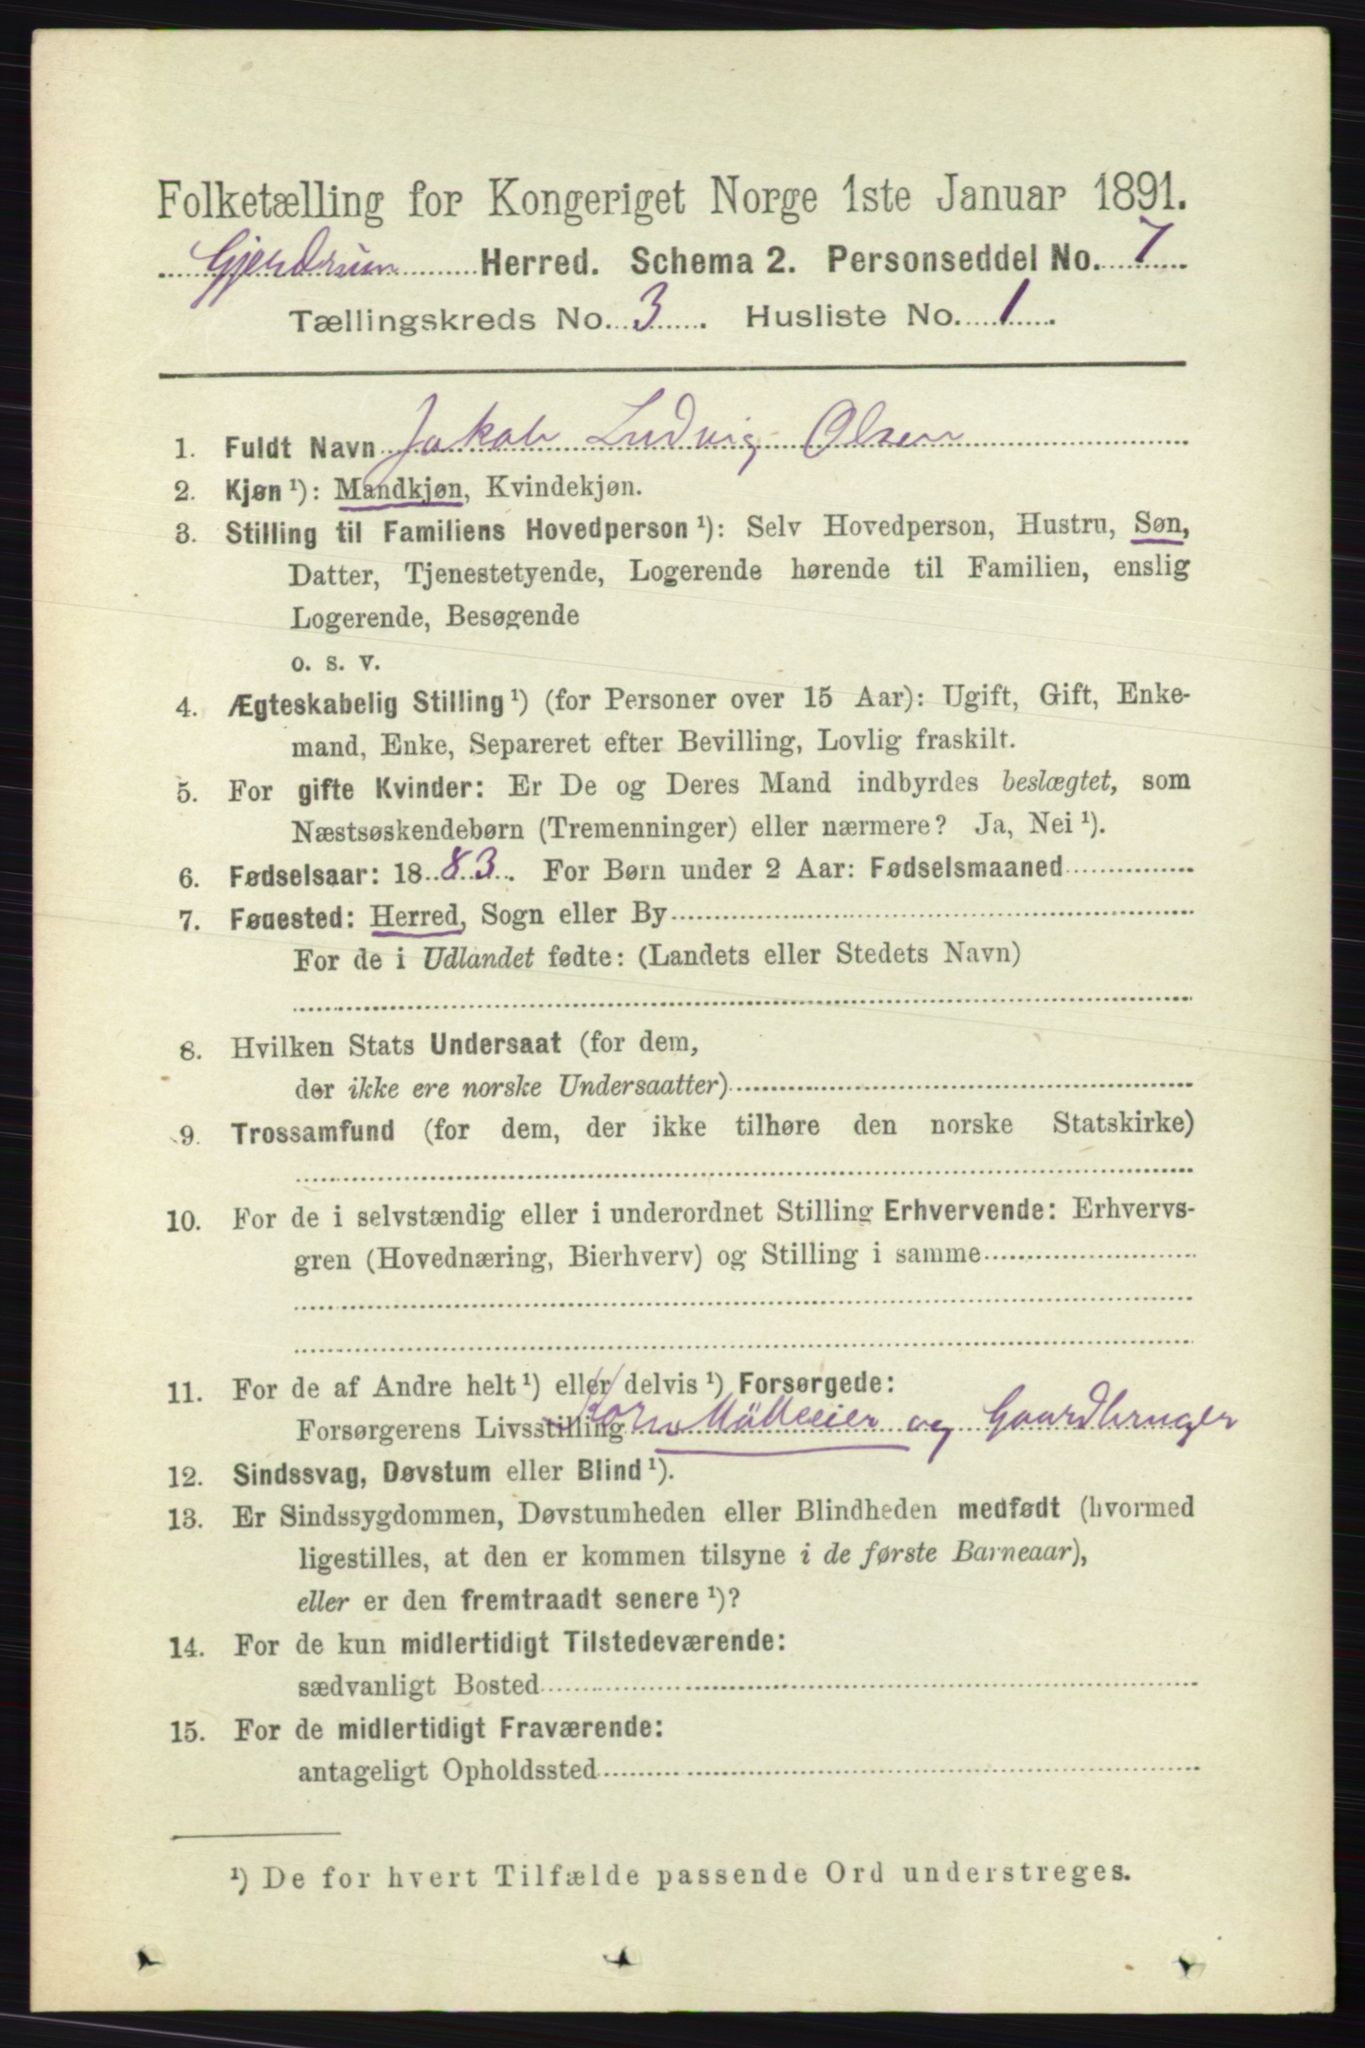 Folketælling for Kongeriget Norge 1ste Januar 1891.
Gjerdrum Herred. Schema 2. Personseddel No. 7
Tællingskreds No. 3. Husliste No. 1.
1. Fuldt Navn Jakob Ludvig Olsen
2. Kjøn ¹): Mandkjøn, Kvindekjøn.
3. Stilling til Familiens Hovedperson ¹): Selv Hovedperson, Hustru, Søn,
Datter, Tjenestetyende, Logerende hørende til Familien, enslig
Logerende, Besøgende
o. s. v.
4. Ægteskabelig Stilling ¹) (for Personer over 15 Aar): Ugift, Gift, Enke-
mand, Enke, Separeret efter Bevilling, Lovlig fraskilt.
5. For gifte Kvinder: Er De og Deres Mand indbyrdes beslægtet, som
Næstsøskendebørn (Tremenninger) eller nærmere? Ja, Nei ¹).
6. Fødselsaar: 1883. For Børn under 2 Aar: Fødselsmaaned
7. Føuested: Herred, Sogn eller By
For de i Udlandet fødte: (Landets eller Stedets Navn)
8. Hvilken Stats Undersaat (for dem,
der ikke ere norske Undersaatter)
9. Trossamfund (for dem, der ikke tilhøre den norske Statskirke)
10. For de i selvstændig eller i underordnet Stilling Erhvervende: Erhvervs-
gren (Hovednæring, Bierhverv) og Stilling i samme
11. For de af Andre helt ¹) eller delvis ¹) Forsørgede:
Forsørgerens Livsstilling Korn Mölleeier og Gaardbruger
12. Sindssvag, Døvstum eller Blind ¹).
13. Er Sindssygdommen, Døvstumheden eller Blindheden medfødt (hvormed
ligestilles, at den er kommen tilsyne i de første Barneaar),
eller er den fremtraadt senere ¹)?
14. For de kun midlertidigt Tilstedeværende:
sædvanligt Bosted
15. For de midlertidigt Fraværende:
antageligt Opholdssted
¹) De for hvert Tilfælde passende Ord understreges.